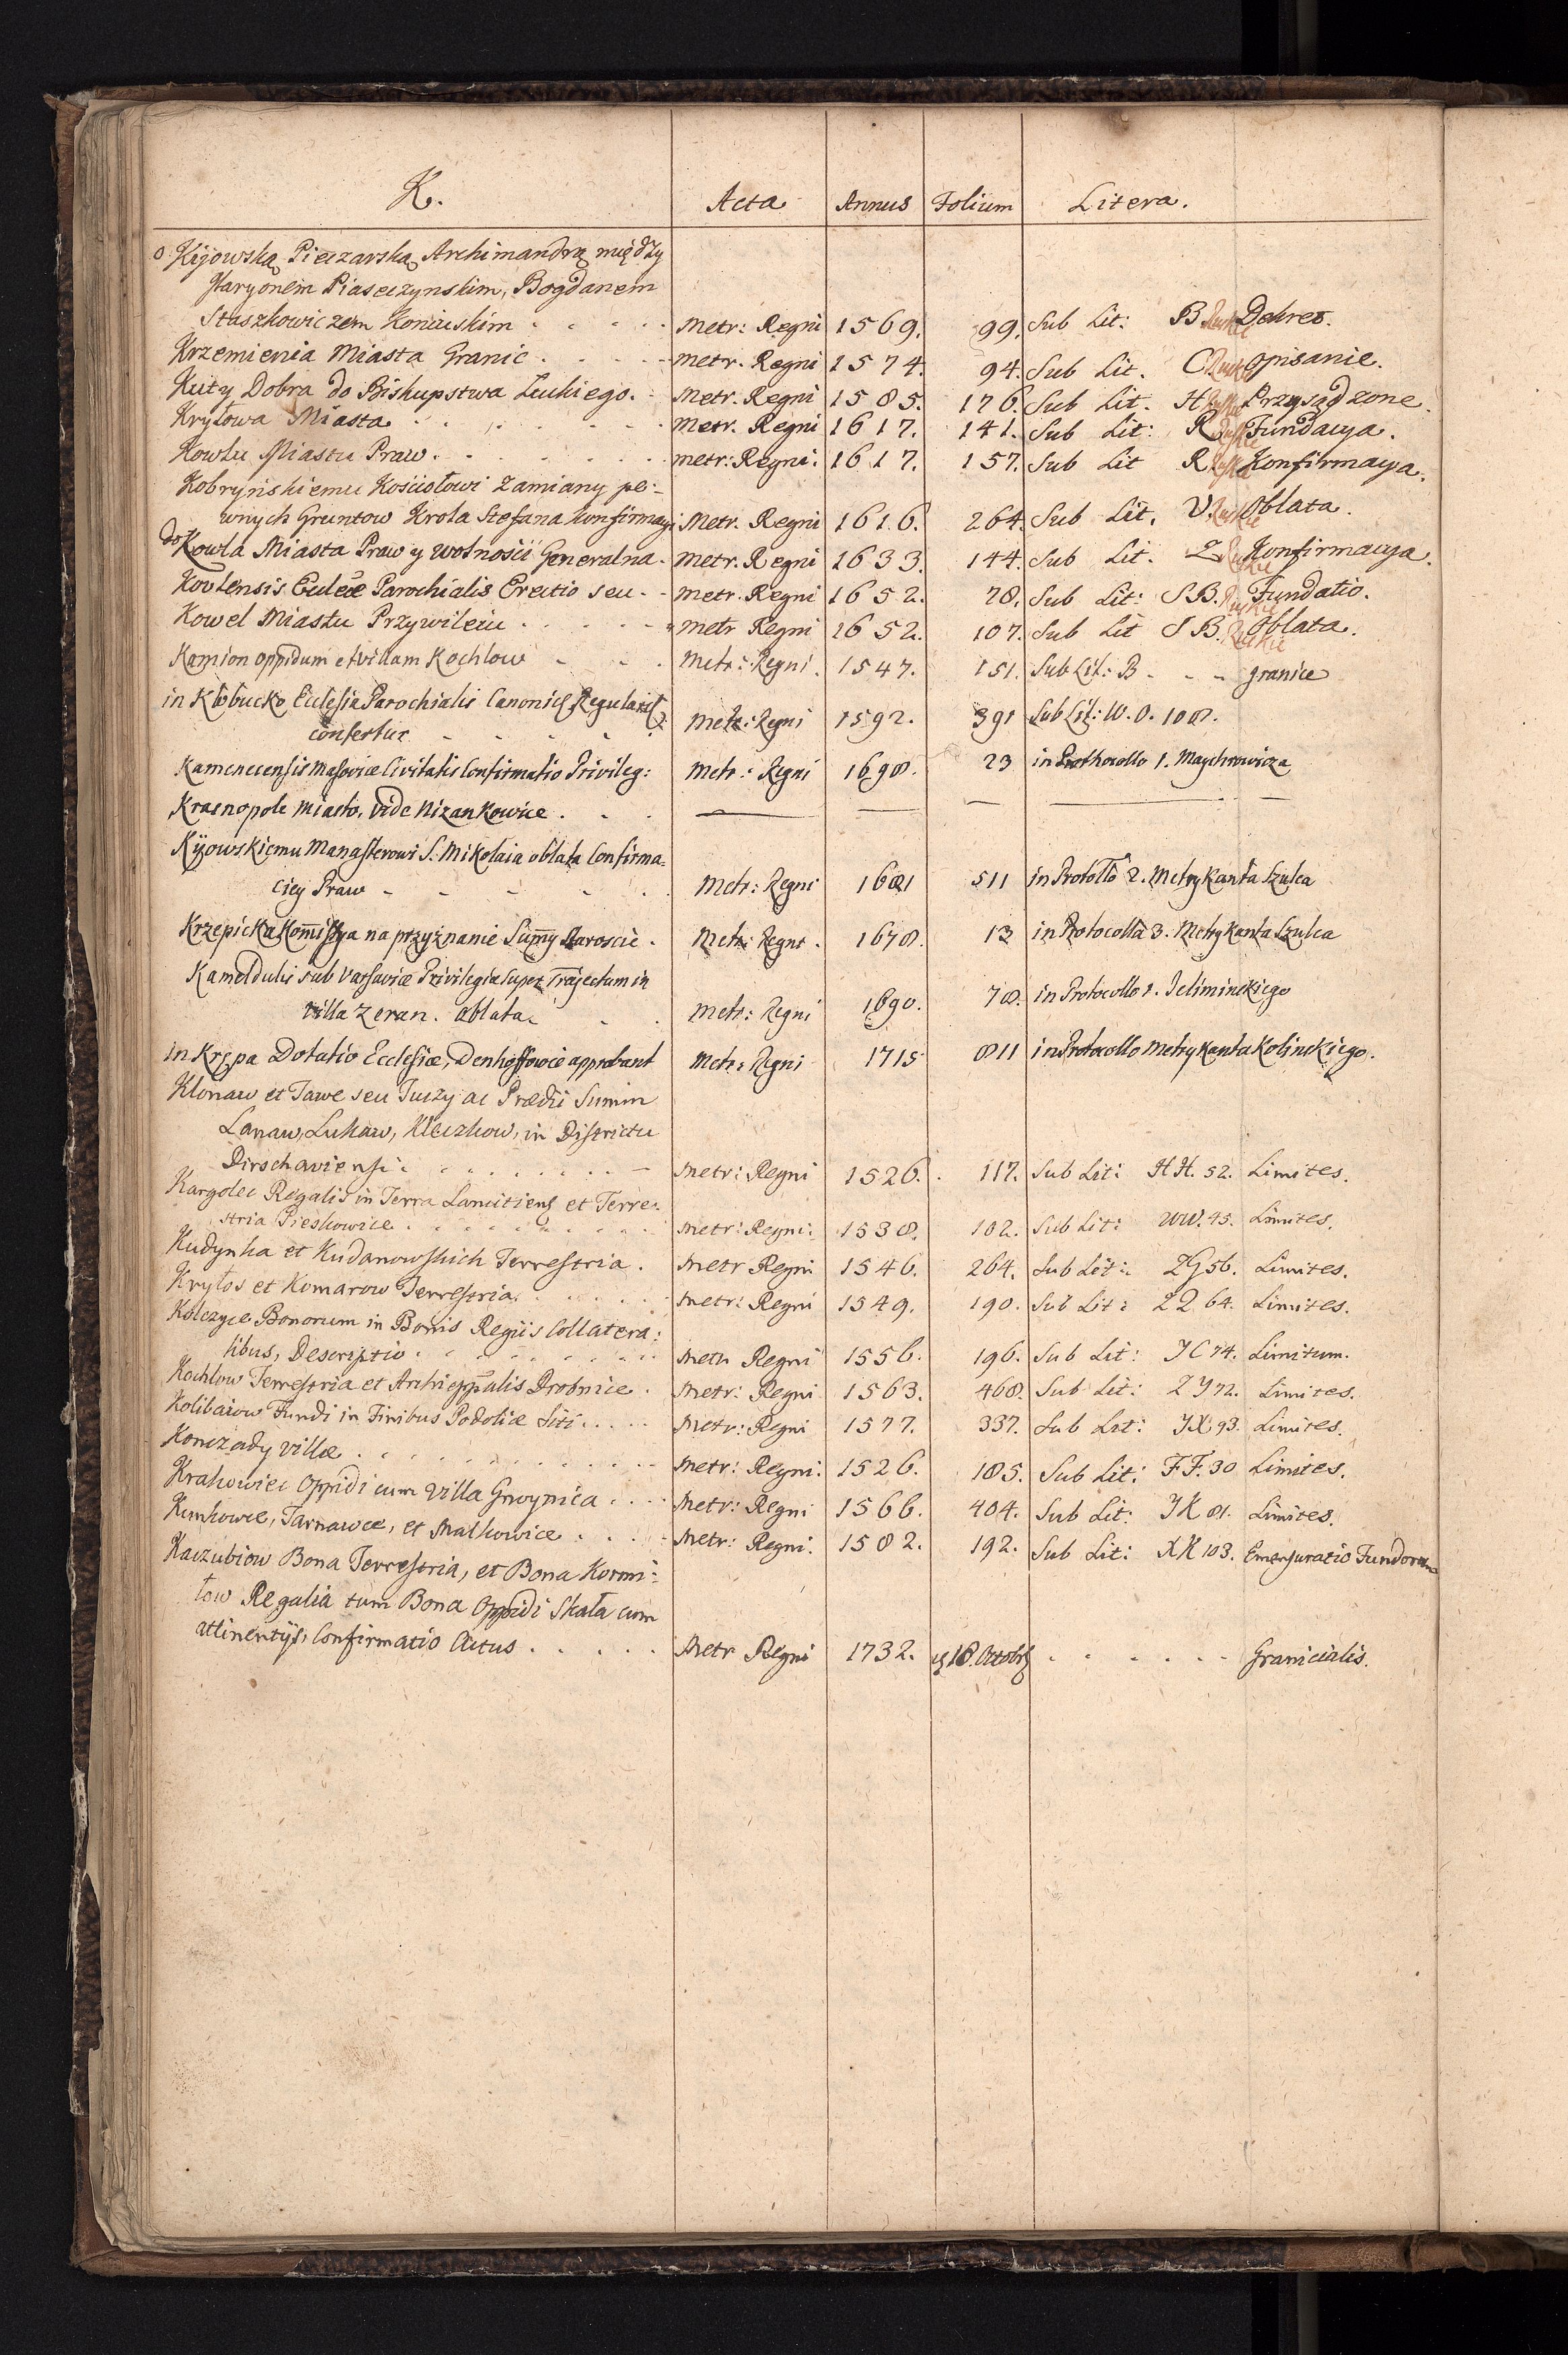 K. Acta Annus Folium Litera.
o Kijowską Pieczarską Archimandrą między
Haryonem Piaseczynskim, Bogdanem
Staszkowiczem Koniuskim . . . . . Metr: Regni 1569. 99. Sub Lit: B Ruskie Dekret.
Krzemienia Miasta Granic . . . . . metr. Regni 1574. 94. Sub Lit. C Ruskie opisanie.
Kuty Dobra do Biskupstwa Łuckiego. - Metr. Regni 1585. 176. Sub Lit. H Ruskie Przysądzone.
Kryłowa Miasta . . . . . . . Metr. Regni 1617. 141. Sub Lit: R Ruskie Fundacya.
Kowlu Miastu Praw . . . . . . . metr: Regni: 1617. 157. Sub Lit R Ruskie Konfirmacya.
Kobrynskiemu Kosciołowi Zamiany pe-
wnych Gruntow Krola Stefana konfirmacyi Metr. Regni 1616. 264. Sub Lit. V. Ruskie Oblata.
do Kowla Miasta Praw y wolnosci Generalna. metr. Regni 1633. 144. Sub Lit. Z Ruskie Konfirmacya.
Kovlensis Eccleæ Parochialis Erectio seu - - metr. Regni 1652. 78. Sub Lit: SB. Ruskie Fundatio.
Kowel Miastu Przywileiu . . . . . . metr Regni 1652. 107. Sub Lit SB. Ruskie Oblata.
Kamion oppidum et villam Kochlow - - . Metr: Regni. 1547. 151. Sub Lit: B - - - granice
in Kłobucko Ecclesia Parochialis Canonicis Regularibus
confertur - - - - - . Metr: Regni 1592. 391 Sub Lit: W. O. 108.
Kamenecensis Masoviæ Civitatis Confirmatio Privileg: Metr: Regni 1698. 23 in Prothocollo 1. Maychrowicza
Krasnopole miasto, vide Nizankowice . . .
Kijowskiemu Manasterowi S. Mikolaia oblata Confirma-
ciey Praw - - - - - . Metr: Regni 1681 511 in Protollo 2. Metrykanta Szulca
Krzepicka Kommissya na przyznanie Summy Staroscie . Metr: Regni . 1678. 13 in Protocolla 3. Metrykanta Szulca
Kameldulis sub Varsavia Privilegia super Trajectum in
villa Zeran. oblata . . . Metr: Regni 1690. 78. in Protocollo 1. Jelimińskiego
in Krępa Dotatio Ecclesiæ, Denhoffowie approbant Metr: Regni 1715 811 in Protocollo Metrykanta Kolinskiego.
Klonaw et Tawe seu Tuczy ac Prædii Sumin
Lanaw, Lukaw, Kleczkow, in Districtu
Dirschaviensi . . . . . . . . Metr: Regni 1526. 117. Sub Lit: HH. 52. Limites.
Kargolec Regalis in Terra Lanciciens et Terre-
stria Pieskowice . . . . . . . . Metr: Regni: 1538. 102. Sub Lit: WW. 45. Limites.
Kudynka et Kudanowskich Terrestria . Metr Regni 1546. 264. Sub Lit: ZG 56. Limites.
Krylos et Komarow Terrestria . . . . . Metr: Regni 1549. 190. Sub Lit: ZQ 64. Limites.
Kolczyce Bonorum in Bonis Regiis Collatera:
libus, Descriptio . . . . . . . . Metr Regni 1556. 196. Sub Lit: YC 74. Limitum.
Kochlow Terrestria et Archieppalis Drobnice . Metr: Regni 1563. 468. Sub Lit: ZY 72. Limites.
Kolibaiow Fundi in Finibus Podoliæ Siti . . . . . Metr: Regni 1577. 337. Sub Lit: YX 93. Limites.
Konczady villæ . . . . . . . . . Metr: Regni: 1526. 185. Sub Lit: FF. 30 Limites.
Krakowiec Oppidi cum villa Gnoynica . . . . Metr: Regni 1566. 404. Sub Lit: YK 81. Limites.
Kunkowce, Tarnawce, et Malkowice . . . . . Metr: Regni. 1582. 192. Sub Lit: XK 103. Emensuratio Fundorum
Kaczubiow Bona Terrestria, et Bona Kormi-
low Regalia tum Bona Oppidi Skała cum
attinentijs, Confirmatio Actus . . . . . Metr Regni 1732. 18. Octobr . . . . . . Granicialis.